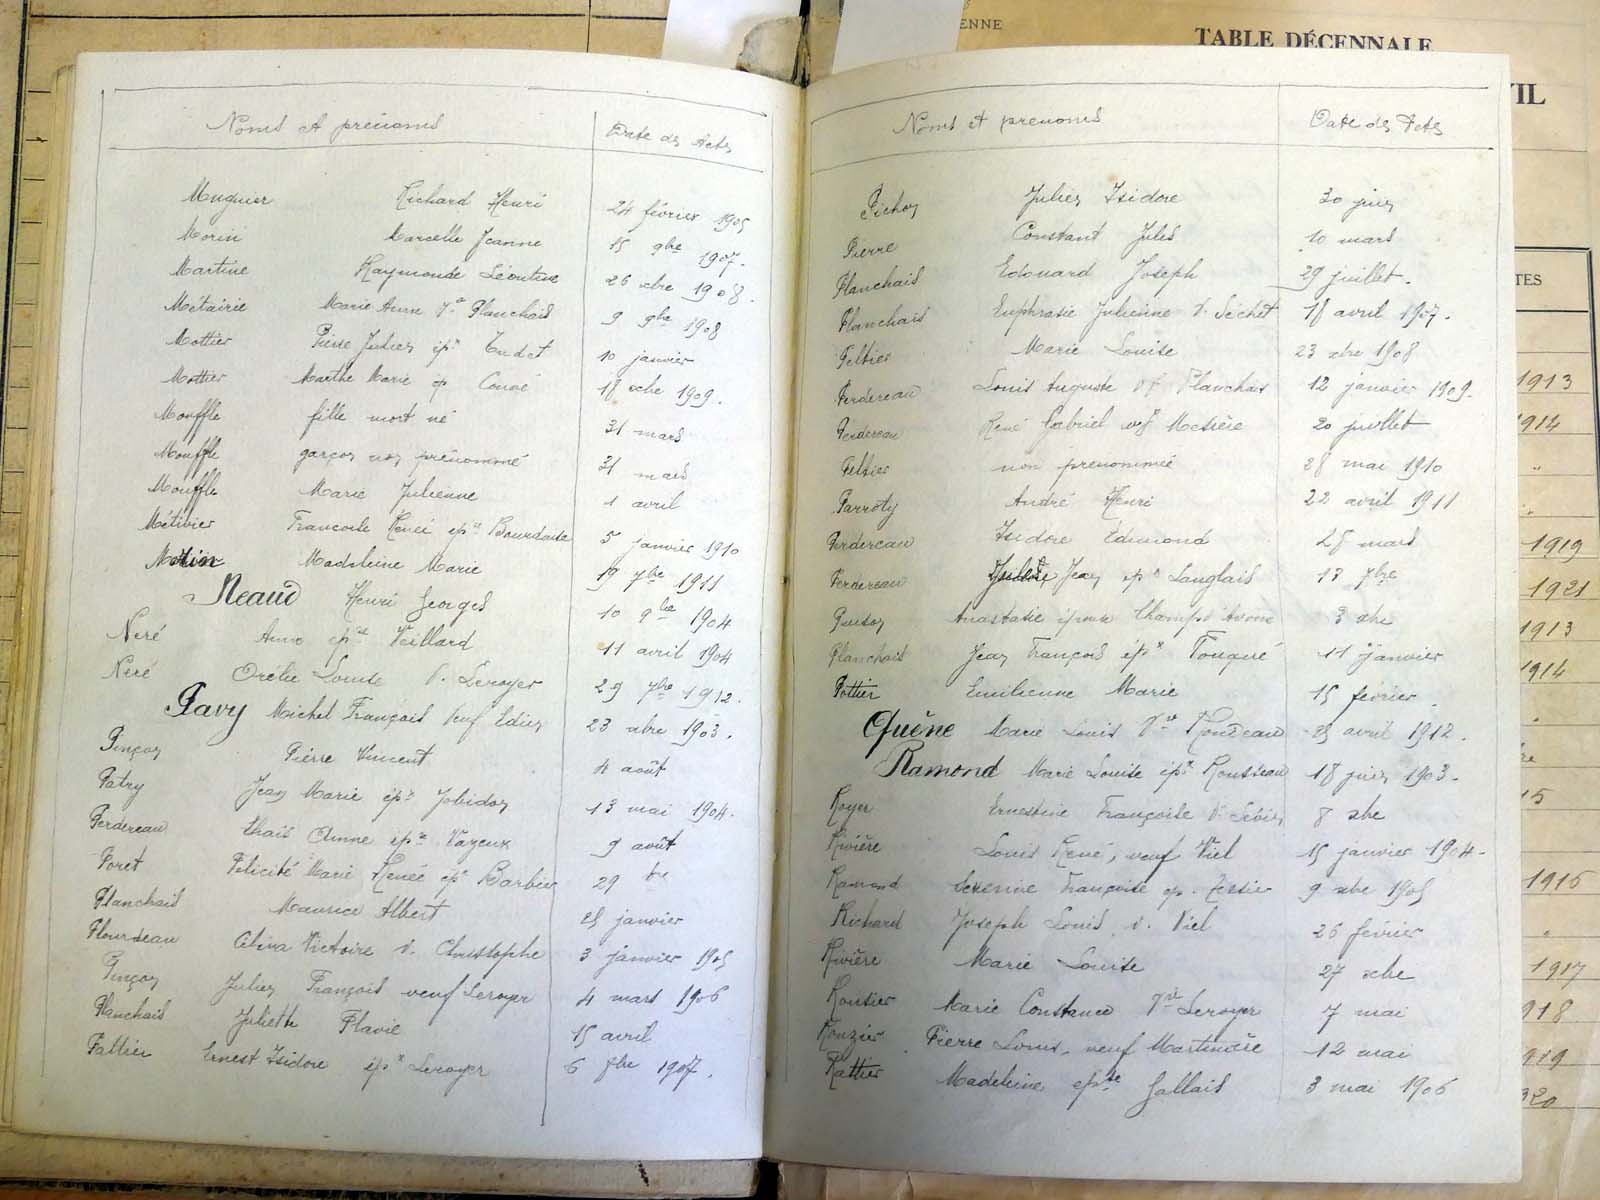 ENNE
TABLE DÉCENNALE
VIL
TES
Noms et prénoms Date des Actes
Muguier Richard Henri 24 février 1905
Morin Marcelle Jeanne 15 9bre 1907.
Martine Raymonde Léontine 26 xbre 1908.
Métairie Marie Anne Planchais 9 9bre 1908
Mottier Pierre Julien ép. 10 janvier
Mottier Marthe Marie ép Coué 18 xbre 1909.
Mouffle fille mort né 31 mars
Mouffle garçon non prénommé 31 mars
Mouffle Marie Julienne 1 avril
Métivier Francoise Renée épse Bourdaise 5 janvier 1910
Morin Madeleine Marie 19 7bre 1911
Neaud Henri Georges 10 9bre 1904
Neré Anne épse Veillard 11 avril 1904
Neré Orélie Louise V. Leroyer 29 7bre 1912.
Pavy Michel François Veuf 23 xbre 1903.
Pinçon Pierre Vincent 4 août
Patry Jean Marie épx Jobidon 13 mai 1904.
Perdereau Thaïs Anne épse Vayeux 9 août
Poret Félicité Marie Renée épse Barbier 29 bre
Planchais Maurice Albert 25 janvier
Plourdeau Célina Victoire v. Christophe 3 janvier 1905
Pinçon Julien François veuf Leroyer 4 mars 1906
Planchais Juliette Flavie 15 avril
Pattier Ernest Isidore épx Leroyer 6 7bre 1907.
Noms et prénoms Date des Actes
Pichon Julien Isidore 30 juin
Pierre Constant Jules 10 mars
Planchais Edouard Joseph 29 juillet.
Planchais Euphrasie Julienne V. Séchet 18 avril 1907.
Peltier Marie Louise 23 xbre 1908
Perdereau Louis Auguste vf Planchais 12 janvier 1909.
Perdereau René Gabriel vf 20 juillet
Peltier non prénommée 28 mai 1910
Parroty André Henri 22 avril 1911
Perdereau Isidore Edmond 28 mars
Perdereau Jean épx Langlais 13 7bre
Anastasie épouse 3 xbre
Planchais Jean François épx Fouqué 11 janvier
Pottier Emilienne Marie 15 février.
Quène Marie Louis Vve Rondeau 25 avril 1912.
Ramond Marie Louise épse Rousseau 18 juin 1903.
Royer Ernestine Françoise V. 8 xbre
Rivière Louis René, veuf Viel 15 janvier 1904.
Ramond Françoise ép. Tessier 9 xbre 1905
Richard Joseph Louis, v. Viel 26 février
Rivière Marie Louise 27 xbre
Roustier Marie Constance Vve Leroyer 7 mai
Rouzier Pierre Louis, veuf Martinière 12 mai
Rattier Madeleine epse Gallais 3 mai 1906
1913
1914
"
"
1919
1921
1913
1914
"
15
1916
"
1917
918
919
920